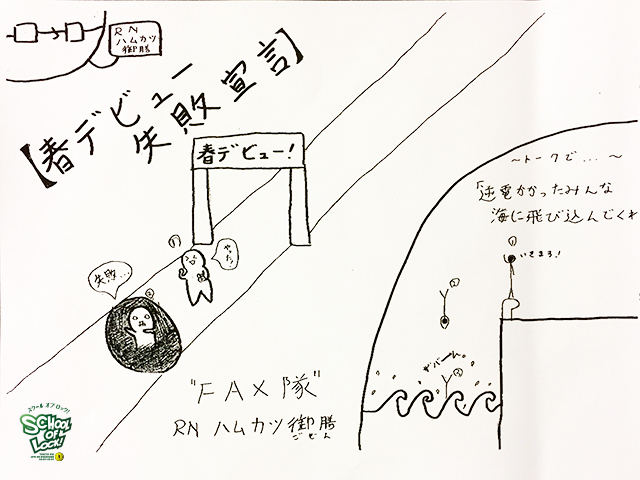 RN
ハムカツ
御膳
【春デビュー
失敗宣言】
春デビュー!
①
やった!
失敗...
②
〜トークで...〜
「逆電かかったみんな
海に飛び込んでくれ
①
いきまろ!
②
ザバーん。
③
"FAX隊"
RN ハムカツ御膳
ごぜん
スクール オブ ロック!
SCHOOL
OF
LOCK!